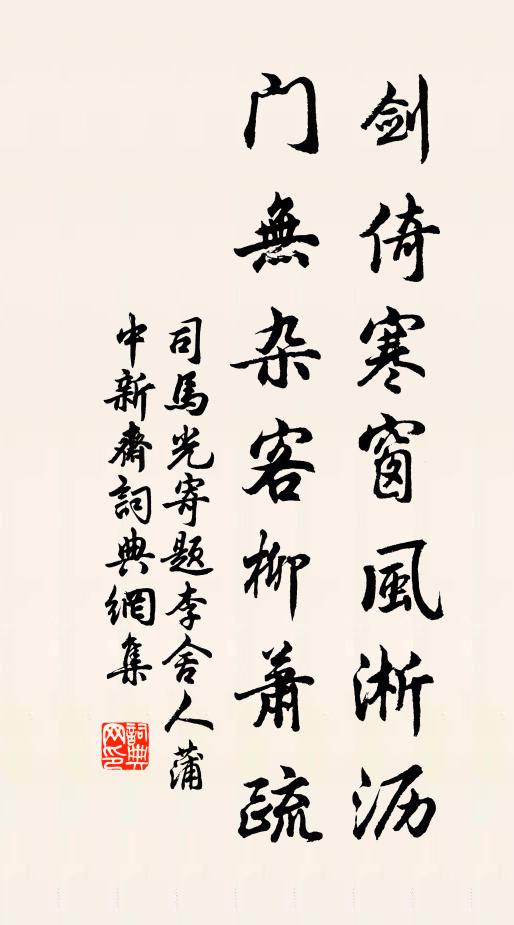 剑倚寒窗風淅沥
门無杂客柳蕭疏
司馬光寄题李舍人蒲
中新齋詞典網集
詞典网印